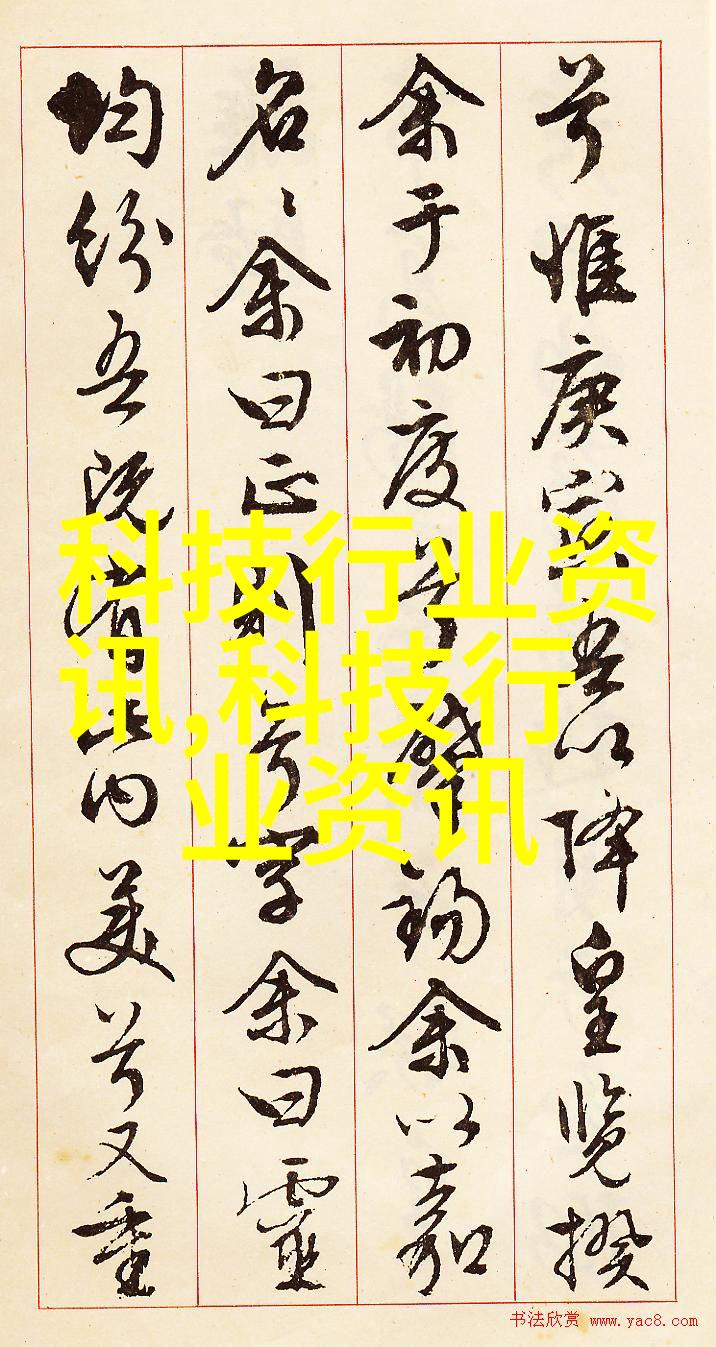 兮惟庚寅吾以降皇览揆
余于初度兮肇锡余以嘉
名〻余曰正则兮字余曰靈
均纷吾既有此内美兮又重
科技行业资
讯,科技行
业资讯
书法欣赏 www.yac8.com